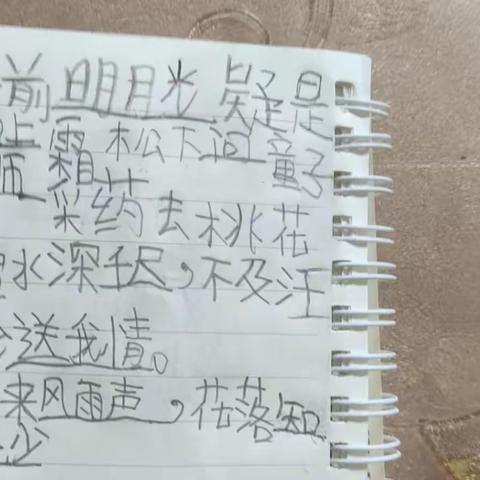 前明月光疑是
上霜 松下问童子
师采药去桃花
水深千尺，不及汪
送我情。
来风雨声，花落知
少